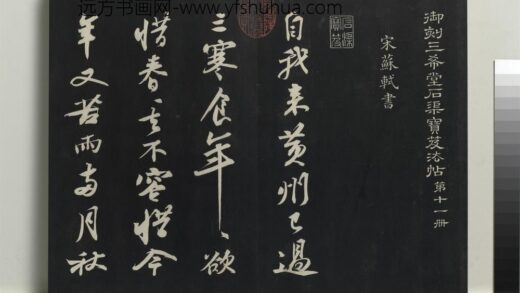 远方书画网-www.yfshuhua.com
御刻三希堂石渠寶笈法帖第十一冊
宋蘇軾書
自我来黃州已過
三寒食年〻欲
惜春〻去不容惜今
年又苦雨兩月秋